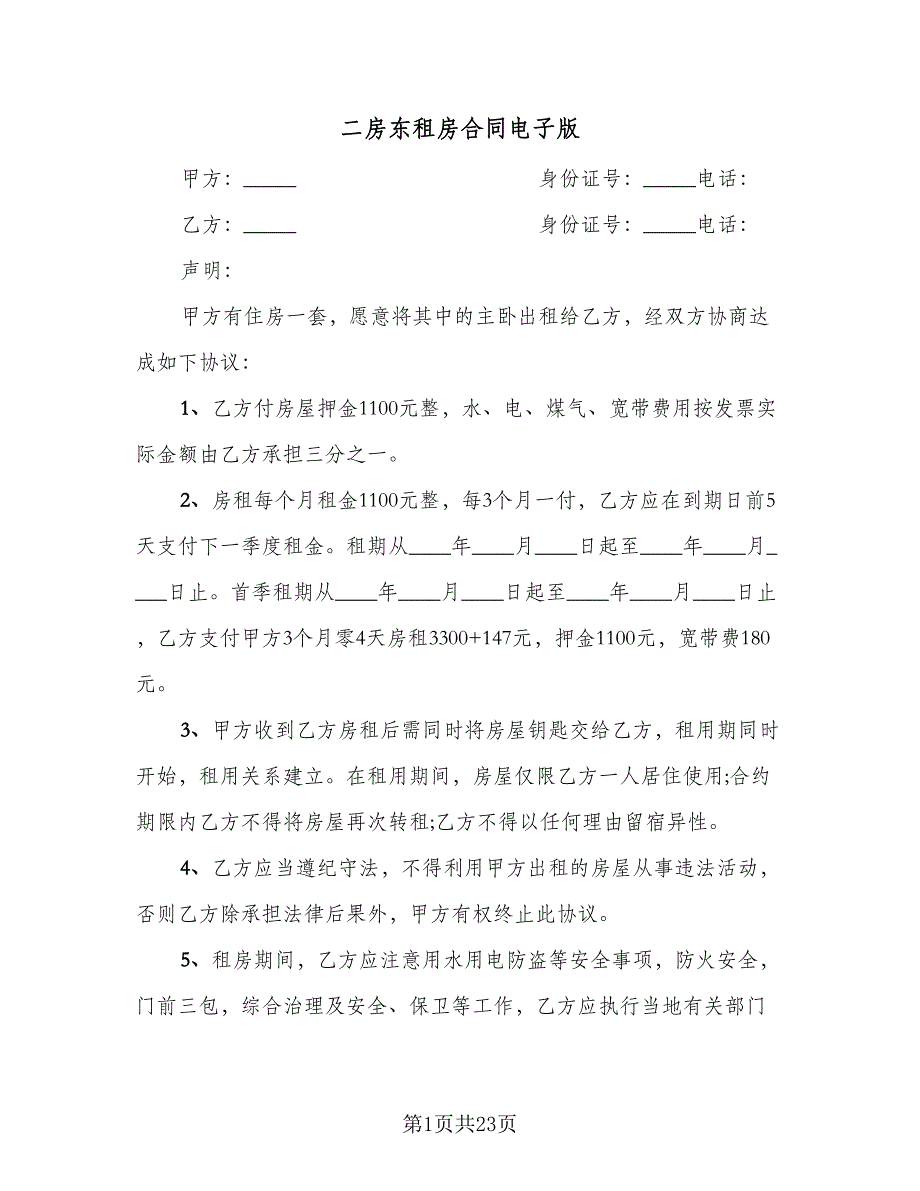 二房东租房合同电子版
甲方：_____ 身份证号：_____电话：
乙方：_____ 身份证号：_____电话：
声明：
甲方有住房一套，愿意将其中的主卧出租给乙方，经双方协商达
成如下协议：
1、乙方付房屋押金1100元整，水、电、煤气、宽带费用按发票实
际金额由乙方承担三分之一。
2、房租每个月租金1100元整，每3个月一付，乙方应在到期日前5
天支付下一季度租金。租期从____年____月____日起至____年____月_
___日止。首季租期从____年____月____日起至____年____月____日止
，乙方支付甲方3个月零4天房租3300+147元，押金1100元，宽带费180
元。
3、甲方收到乙方房租后需同时将房屋钥匙交给乙方，租用期同时
开始，租用关系建立。在租用期间，房屋仅限乙方一人居住使用;合约
期限内乙方不得将房屋再次转租;乙方不得以任何理由留宿异性。
4、乙方应当遵纪守法，不得利用甲方出租的房屋从事违法活动，
否则乙方除承担法律后果外，甲方有权终止此协议。
5、租房期间，乙方应注意用水用电防盗等安全事项，防火安全，
门前三包，综合治理及安全、保卫等工作，乙方应执行当地有关部门
第1页共23页